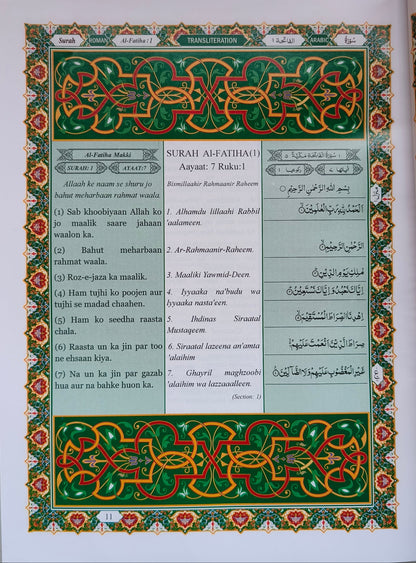 Surah ROMAN Al-Fatiha : 1 TRANSLITERATION الفاتحة ١ ARABIC سُوْرَةٌ
Al-Fatiha Makki
SURAH: 1 AYAAT:7
Allaah ke naam se shuru jo
behat meharbaan rahmat waala.
(1) Sab khoobiyaan Allah ko
jo maalik saare jahaan
waalon ka.
(2) Bahut meharbaan
rahmat waala.
(3) Roz-e-jaza ka maalik.
(4) Ham tujhi ko poojen aur
tujhi se madad chaahen.
(5) Ham ko seedha raasta
chala.
(6) Raasta un ka jin par too
ne ehsaan kiya.
(7) Na un ka jin par gazab
hua aur na bahke huon ka.
SURAH Al-FATIHA(1)
Aayaat: 7 Ruku:1
Bismillaahir Rahmaanir Raheem
1. Alhamdu lillaahi Rabbil
'aalameen.
2. Ar-Rahmaanir-Raheem.
3. Maaliki Yawmid-Deen.
4. Iyyaaka na'budu wa
Iyyaaka nasta'een.
5. Ihdinas Siraatal
Mustaqeem.
6. Siraatal lazeena an'amta
'alaihim
7. Ghayril maghzoobi
'alaihim wa lazzaaalleen.
(Section: 1)
بِسْمِ اللّٰهِ الرَّحْمٰنِ الرَّحِيْمِ
اَلْحَمْدُ لِلّٰهِ رَبِّ الْعٰلَمِيْنَ ۝١
الرَّحْمٰنِ الرَّحِيْمِ ۝٢
مٰلِكِ يَوْمِ الدِّيْنِ ۝٣
اِيَّاكَ نَعْبُدُ وَ اِيَّاكَ نَسْتَعِيْنُ ۝٤
اِهْدِنَا الصِّرَاطَ الْمُسْتَقِيْمَ ۝٥
صِرَاطَ الَّذِيْنَ اَنْعَمْتَ عَلَيْهِمْ ۝٦
غَيْرِ الْمَغْضُوْبِ عَلَيْهِمْ وَلَا الضَّآلِّيْنَ ۝٧
11